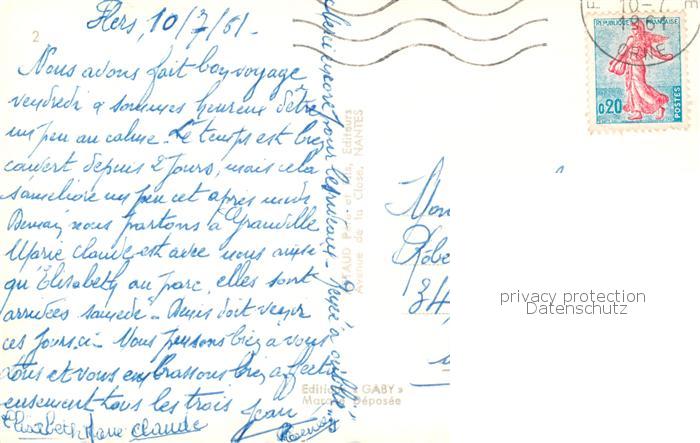 2
Flers, 10/7/61.
Nous avons fait bon voyage
vendredi & sommes heureux d'être
un peu au calme. Le temps est bien
couvert depuis 2 jours, mais cela
s'améliore un peu cet après midi.
Demain nous partons à Granville
Marie Claude est avec nous ainsi
qu'Elisabeth au parc, elles sont
arrivées samedi. Denis doit venir
ces jours ci. Nous pensons bien à vous
tous et vous embrassons bien affectu
eusement tous les trois Jean
Elisabeth Marie Claude
Merci encore pour
ARTAUD Père et Fils, Editeurs
Avenue de la Close, NANTES
Editions "GABY"
Marque Déposée
10-7
1961
ORNE
REPUBLIQUE FRANÇAISE
0,20
POSTES
Mon
Robe
34,
privacy protection
Datenschutz